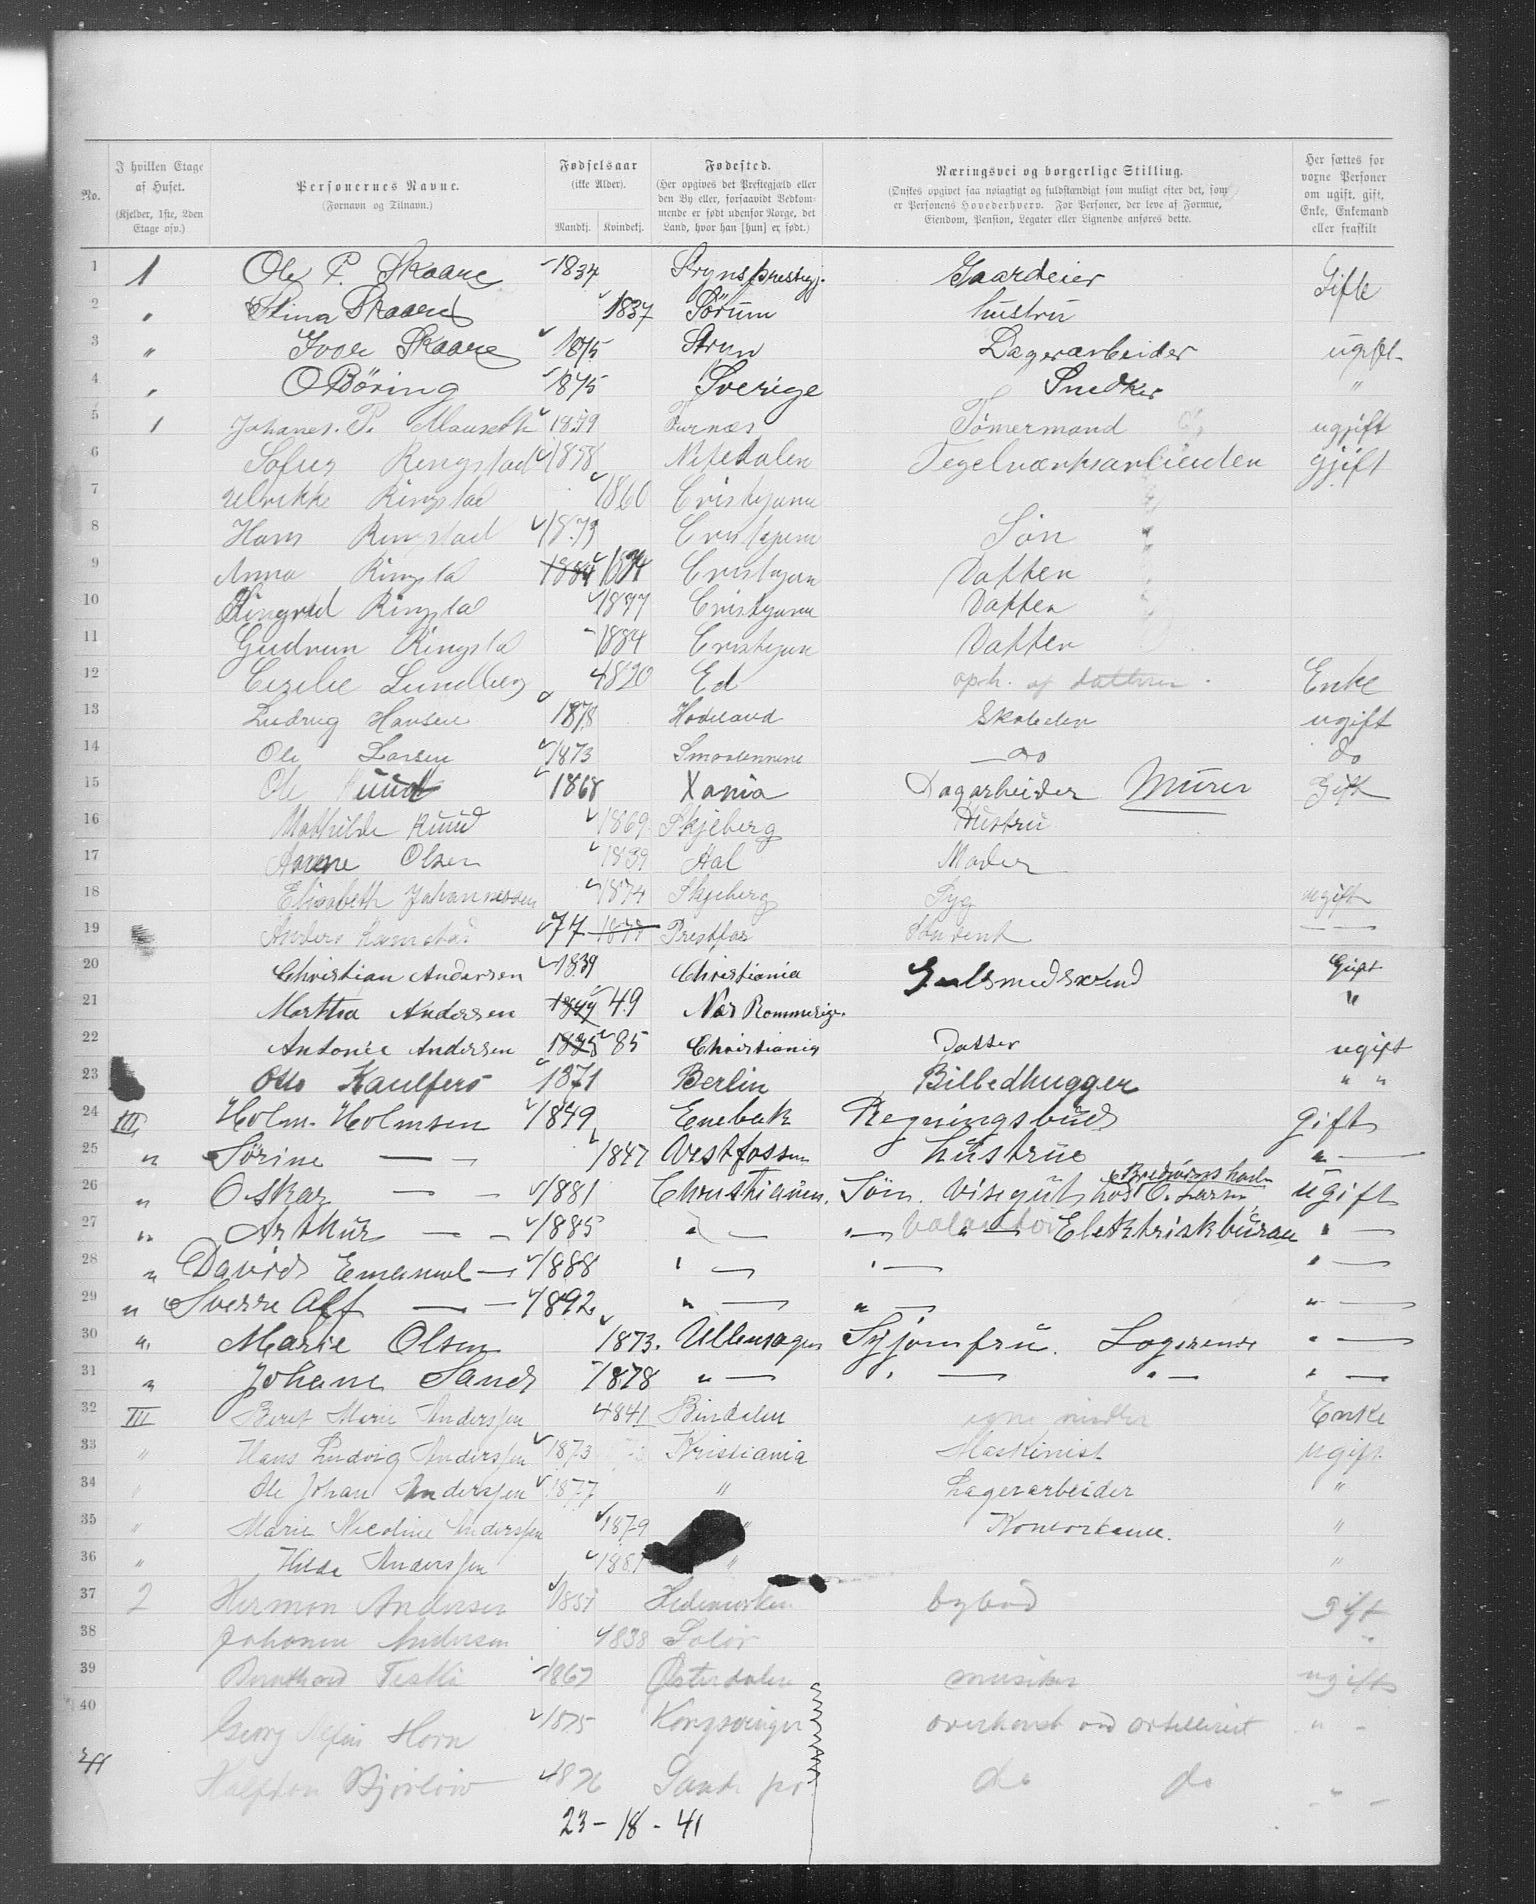 No. I hvilken Etage af Huset. (Kjelder, 1ste, 2den Etage osv.) Personernes Navne. (Fornavn og Tilnavn.) Fødselsaar (ikke Alder). Mandkj. Kvindekj. Fødested. (Her opgives det Prestegjæld eller den By eller, forsaavidt Vedkommende er født udenfor Norge, det Land, hvor han [hun] er født.) Næringsvei og borgerlige Stilling. (Ønskes opgivet saa nøiagtigt og fuldstændigt som muligt efter det, som er Personens Hovederhverv. For Personer, der leve af Formue, Eiendom, Pension, Legater eller Lignende anføres dette. Her sættes for voxne Personer om ugift, gift, Enke, Enkemand eller fraskilt
1 1 Ole P. Skaare 1834 Stryns prestegj. Gaardeier Gifte
2 " Stina Skaare 1837 Sørum hustru
3 " Ivar Skaare 1875 Stryn Lagerarbeider ugift
4 " O Böring 1875 Sverige Snedker "
5 1 Johanes. P. Mauseth 1879 Furnæs Tømermand ugjift
6 Ringstad 1858 Nitedalen Tegelværksarbeiden gjift
7 Ulrikke Ringstad 1860 Cristyana
8 Hans Ringstad 1879 Cristyana Søn
9 Anna Ringsta 1884 Cristyana Datten
10 Ringsta 1877 Cristyana Datten
11 Gudrun Ringsta 1884 Cristyana Datten
12 Cezelie Lundberg 1820 Ed opk. af datteren. Enke
13 Ludvig Hansen 1878 Hadeland Skoleelev ugift
14 Ole Larsen 1873 Smaalennene do do
15 Ole Ruud 1868 Xania Dagarbeider Murer Gift
16 Mathilde Ruud 1869 Skjeberg Hustru
17 Anne Olsen 1839 Hal Moder
18 Elisabeth Johannessen 1874 Skjeberg Syg ugift
19 Anders 77 1877 Student — —
20 Christian Andersen 1839 Christiania Guldsmedsvend Gift
21 Martha Andersen 1849 49 Nes Rommerige. "
22 Antonie Andersen 1885 85 Christiania Datter ugift
23 Otto Kaulfers 1871 Berlin Billedhugger " "
24 III Holm. Holmsen 1849 Enebak Regningsbud gift
25 " Sørine — - 1847 Vestfossen Hustrue " —
26 " Oskar — - 1881 Christianien. Søn. Visergut hos O. Larsen ugift
27 " Arthur — - 1885 " — " — Volontør Elektriskbureau " —
28 " David Emanuel — 1888 " — " — " —
29 " Sverre Alf — - 1892 " — " — " —
30 " Marie Olsen 1873. Ullensager Syjomfru. Logerende " —
31 " Johane Sand 1878 " — " — " — " —
32 III Berit Marie Anderssen 1841 Bindalen egne midler Enke
33 " Hans Ludvig Anderssen 1873 Kristiania Maskinist ugift
34 " Ole Johan Anderssen 1877 " Lagerarbeider "
35 " Marie Nicoline Anderssen 1879 " Kontordame. "
36 " Hilda Anderssen 1881 " "
37 2 Herman Andersen 1857 Hedemarken bybud gift
38 Johanne Andersen 1838 Solør "
39 Bernhard 1867 Østerdalen musiker ugift
40 Georg Horn 1875 Kongsvinger ved artilleriet " -
41 Halfdan 1876 do do " -
23 - 18 - 41